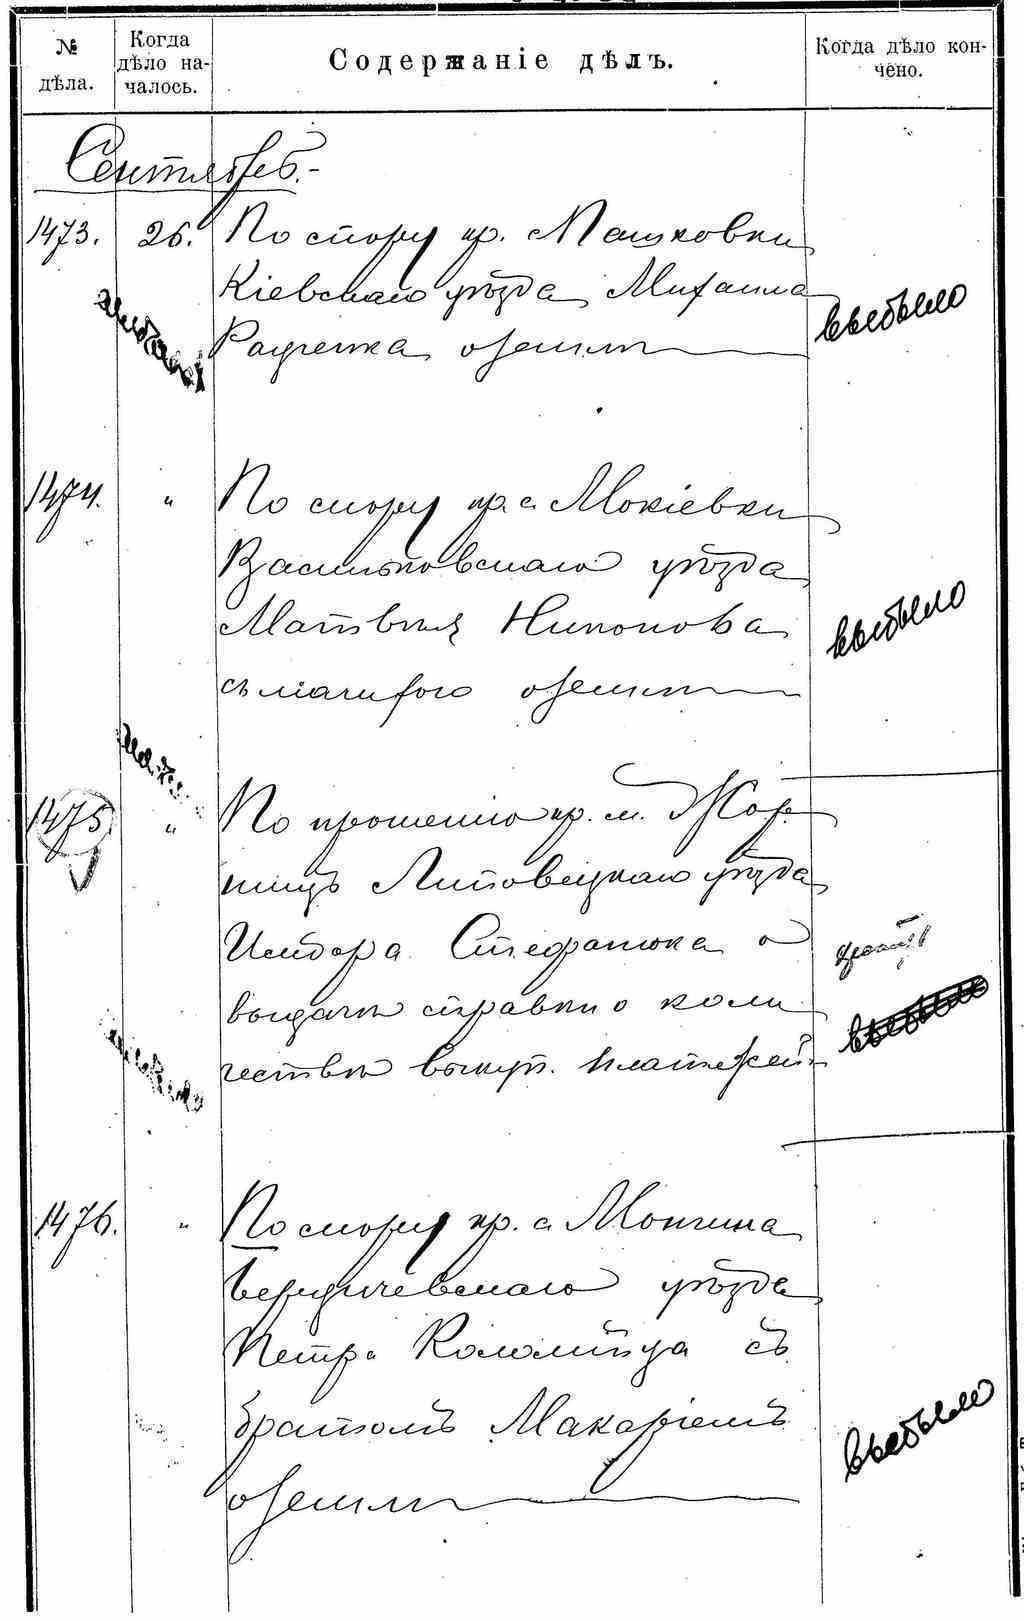 № дѣла.
Когда дѣло началось.
Содержаніе дѣлъ.
Когда дѣло кончено.
Сентябрь.-
1473. 26. По спору кр. Машковки
Кіевскаго уѣзда Михаила
о землѣ
выбыло
1474. " По спору кр. с. Мокіевки
Васильковскаго уѣзда
Матвѣя Никонова
о землѣ
выбыло
1475 " По прошенію кр. м. Жор-
нищъ Липовецкаго уѣзда
Исидора Стефанюка о
выдачѣ справки о коли
чествѣ выкуп. платежей
выбыло
1476. " По спору кр. с. Мончина
Бердичевскаго уѣзда
Петра Коломійца съ
братомъ Макаріемъ
о землѣ
выбыло